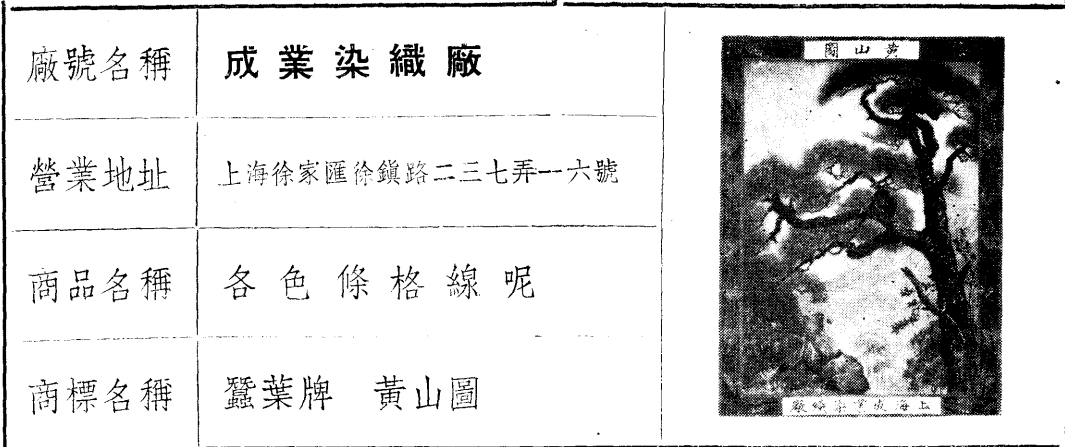 廠號名稱 成業染織廠
營業地址 上海徐家匯徐鎮路二三七弄一一六號
商品名稱 各色條格線呢
商標名稱 蠶葉牌 黃山圖
圖山黃
廠織染業成海上